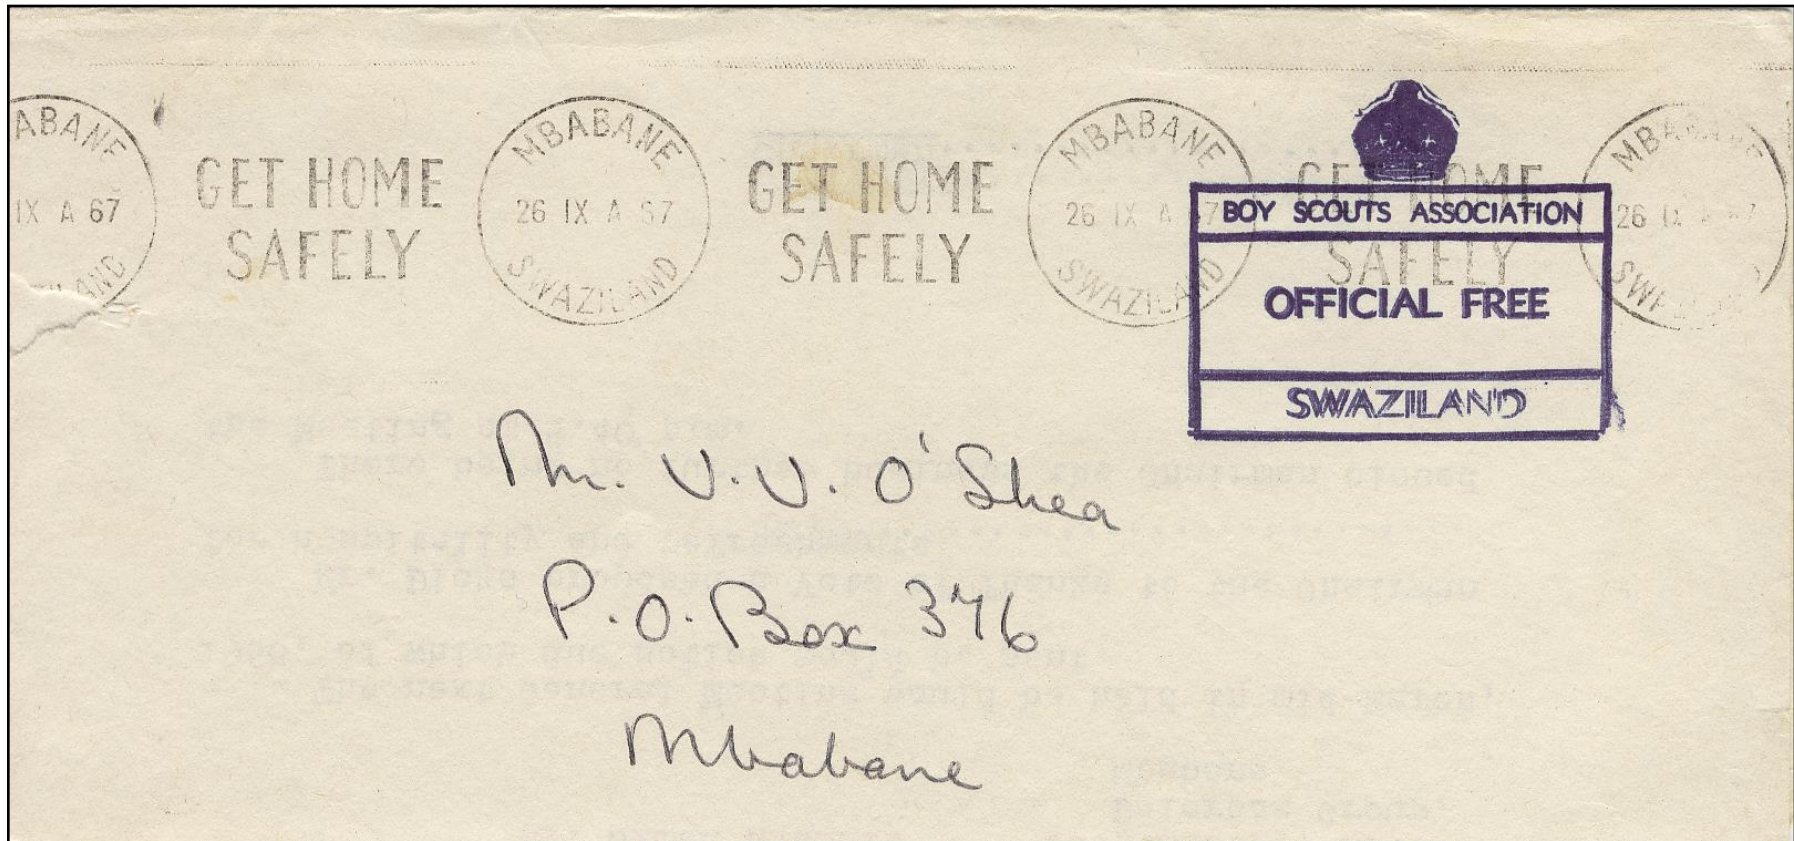 ABANE
IX A 67
GET HOME
SAFELY
MBABANE
26 IX A 67
SWAZILAND
GET HOME
SAFELY
MBABANE
26 IX A 67
SWAZILAND
GET HOME
SAFELY
MBABANE
26 IX
BOY SCOUTS ASSOCIATION
OFFICIAL FREE
SWAZILAND
Mr. V.V. O'Shea
P.O. Box 376
Mbabane